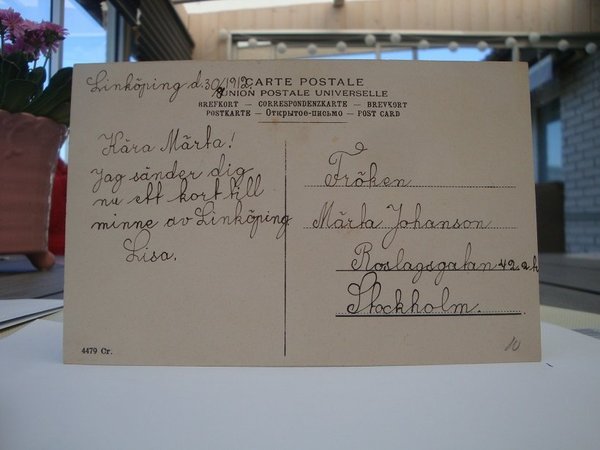 Linköping d. 30/8 1912.
CARTE POSTALE
UNION POSTALE UNIVERSELLE
BREFKORT — CORRESPONDENZKARTE — BREVKORT
POSTKARTE — Открытое-письмо — POST CARD
Kära Märta!
Jag sänder dig
nu ett kort till
minne av Linköping
Lisa.
Fröken
Märta Johanson
Roslagsgatan 42.a.h
Stockholm.
4479 Cr.
10